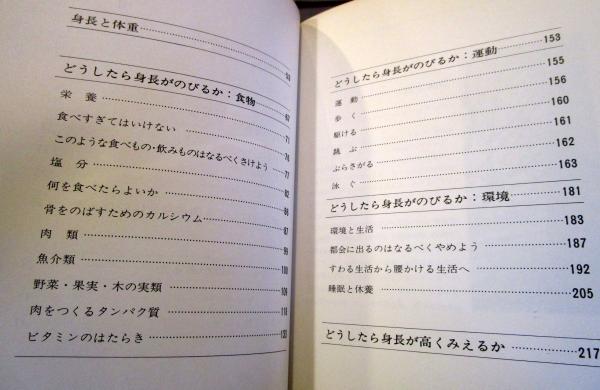 身長と体重
どうしたら身長がのびるか：食物 67
栄養 71
食べすぎてはいけない 76
このような食べもの・飲みものはなるべくさけよう 77
塩分 82
何を食べたらよいか 86
骨をのばすためのカルシウム 87
肉類 99
魚介類 100
野菜・果実・木の実類 109
肉をつくるタンパク質
ビタミンのはたらき
どうしたら身長がのびるか：運動 153
運動 155
歩く 156
駆ける 160
跳ぶ 161
ぶらさがる 162
泳ぐ 163
どうしたら身長がのびるか：環境 181
環境と生活 183
都会に出るのはなるべくやめよう 187
すわる生活から腰かける生活へ 192
睡眠と休養 205
どうしたら身長が高くみえるか 217